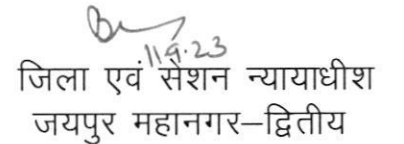 11.9.23
जिला एवं सेशन न्यायाधीश
जयपुर महानगर–द्वितीय